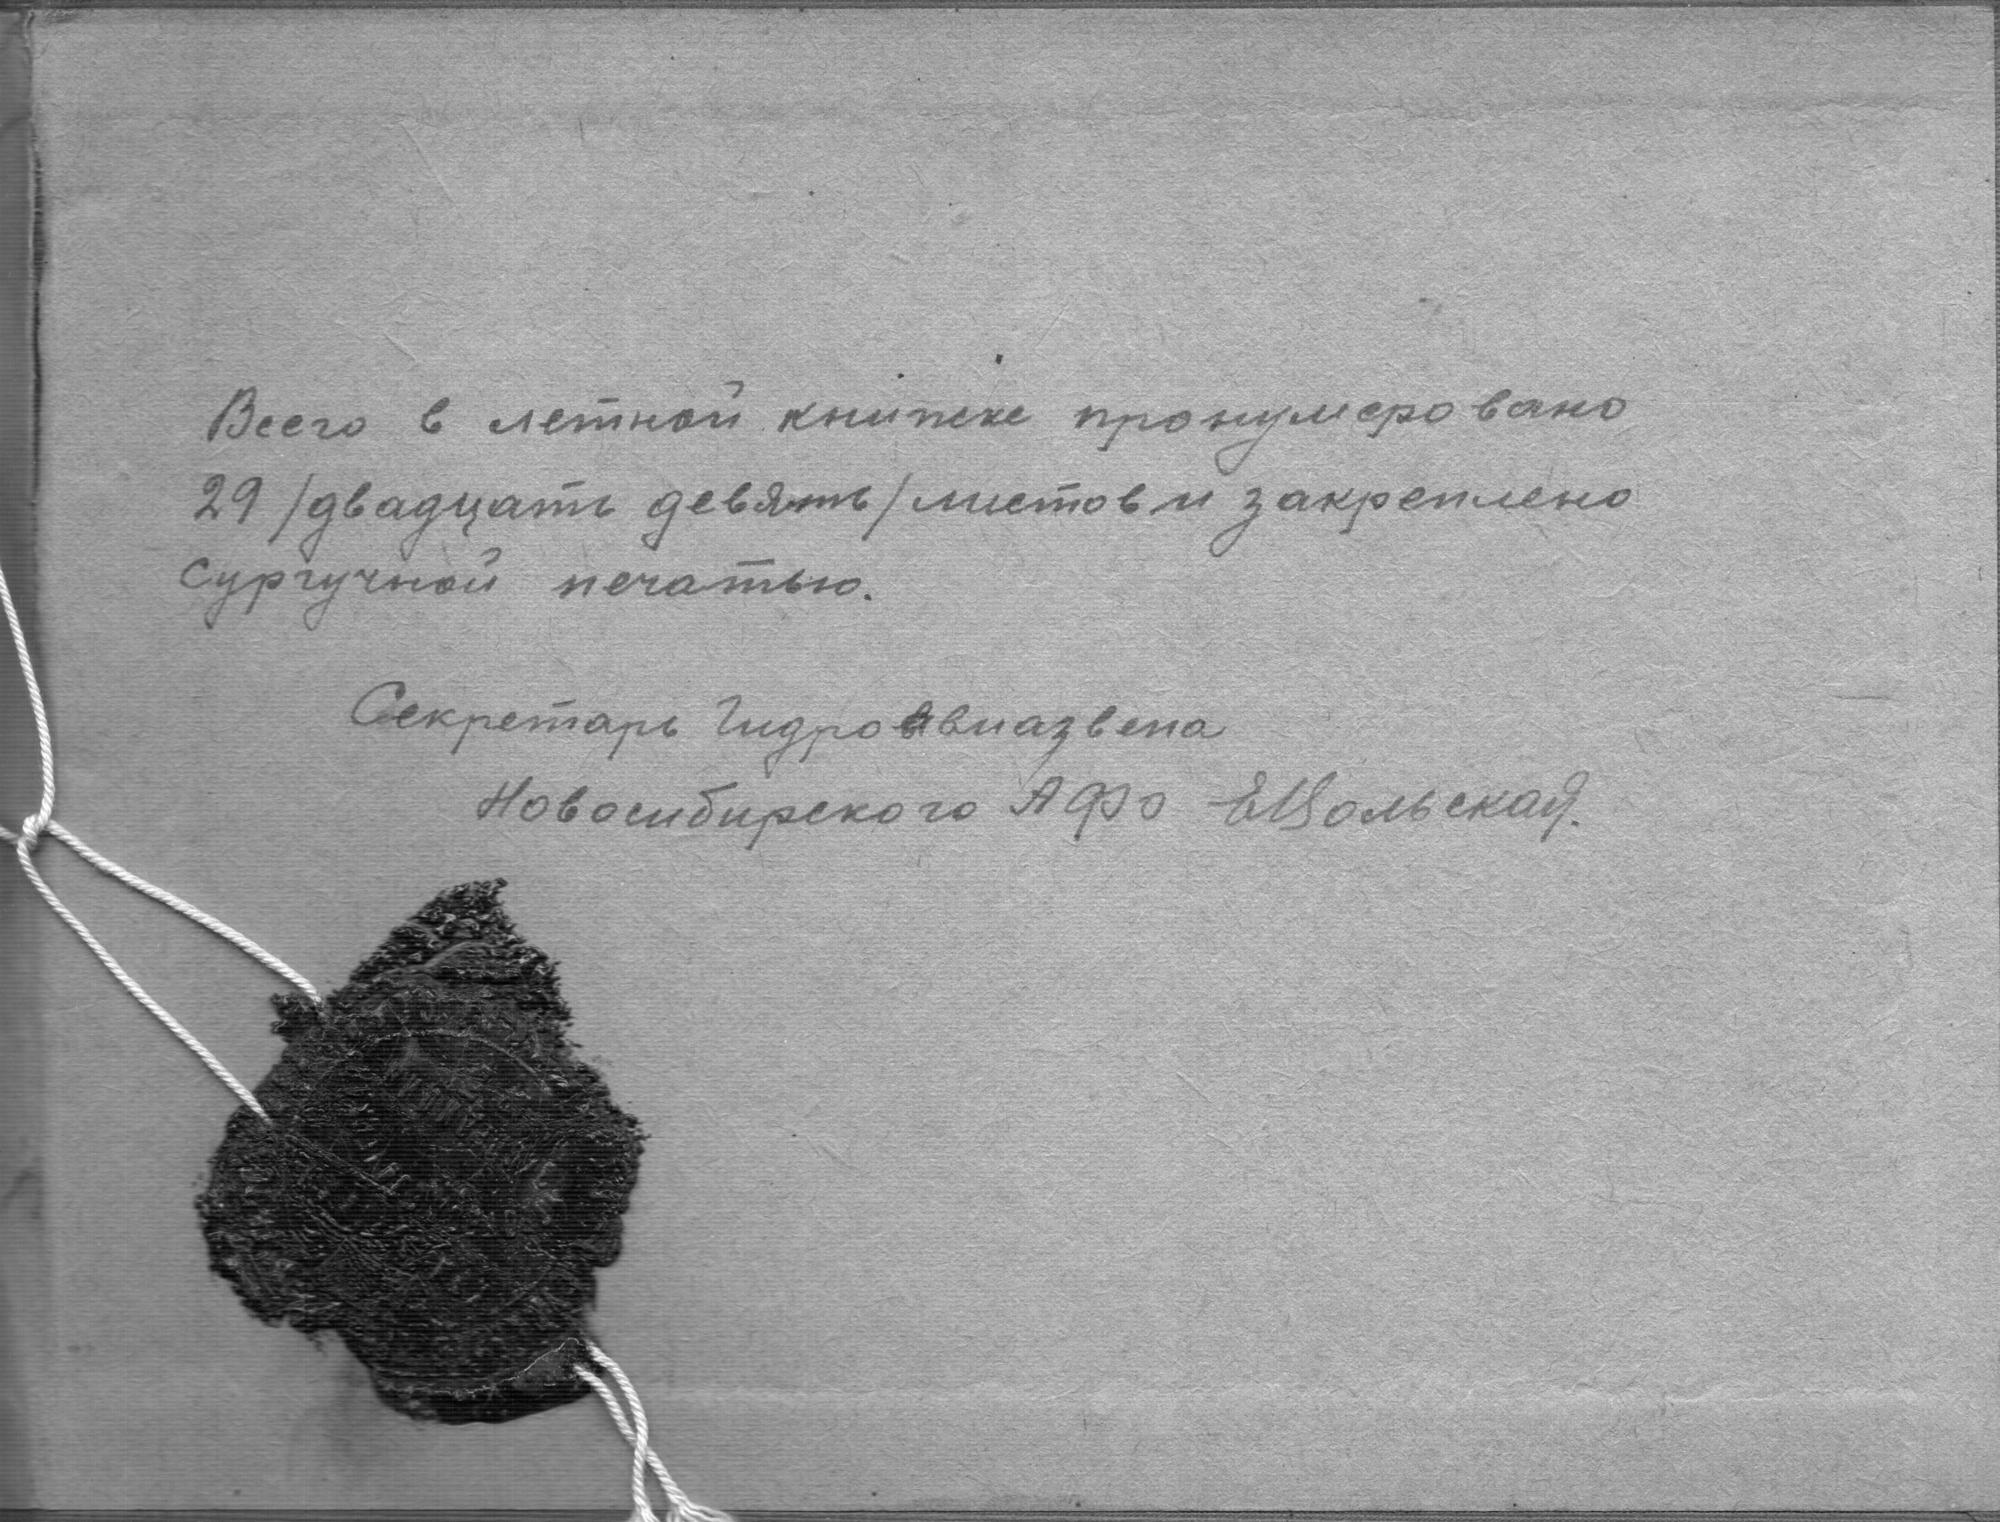 Всего в летной книжке пронумеровано
29 /двадцать девять/ листов и закреплено
сургучной печатью.
Секретарь Гидроавиазвена
Новосибирского АФО